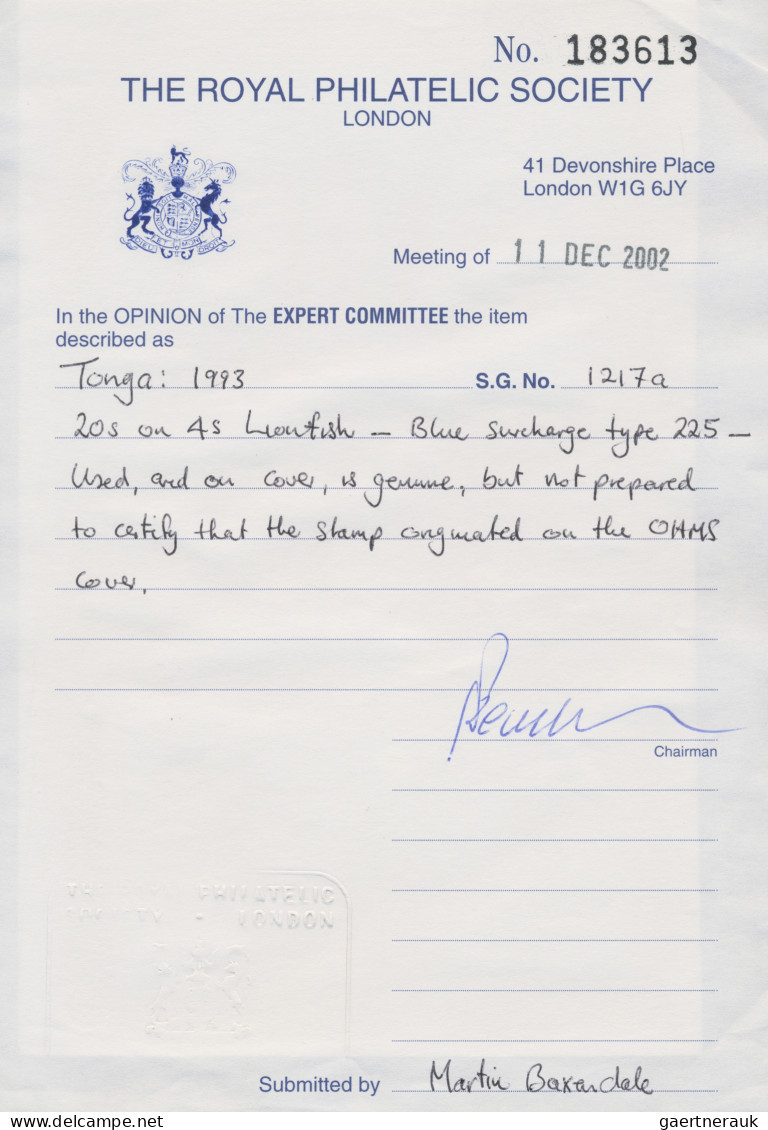 No. 183613
THE ROYAL PHILATELIC SOCIETY
LONDON
41 Devonshire Place
London W1G 6JY
DIEU ET MON DROIT
Meeting of 11 DEC 2002
In the OPINION of The EXPERT COMMITTEE the item
described as
Tonga: 1993 S.G. No. 1217a
20s on 4s Lionfish – Blue surcharge type 225 –
Used, and on cover, is genuine, but not prepared
to certify that the stamp originated on the OHMS
cover.
Chairman
THE ROYAL PHILATELIC
SOCIETY - LONDON
Submitted by Martin Baxendale
gaertnerauk